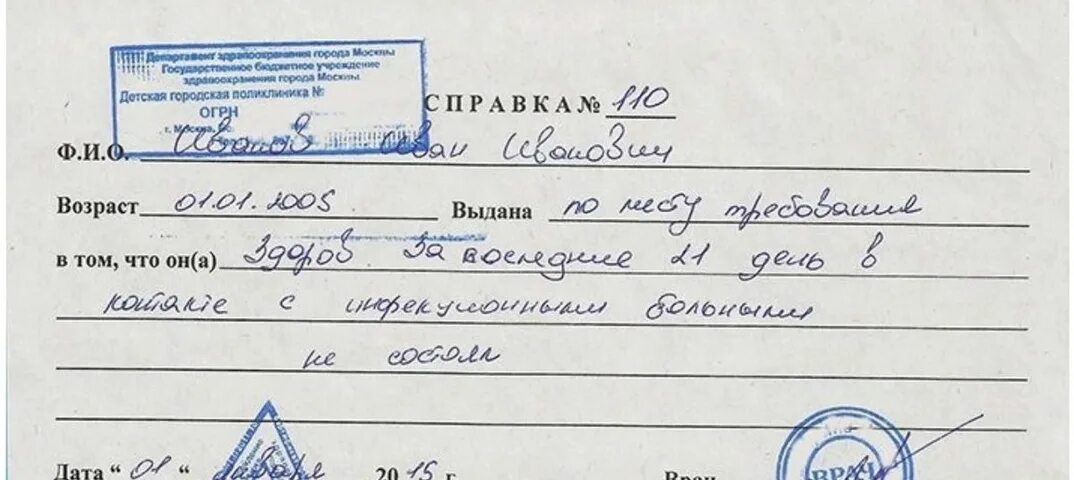 Департамент здравоохранения города Москвы
Государственное бюджетное учреждение
здравоохранения города Москвы
Детская городская поликлиника №
ОГРН
г. Москва,
СПРАВКА № 110
Ф.И.О. Иванов Иван Иванович
Возраст 01.01.2005 Выдана по месту требования
в том, что он(а) Здоров. За последние 21 день в
контакте с инфекционными больными
не состоял
Дата " 01 " января 2015 г. Врач
ВРАЧ